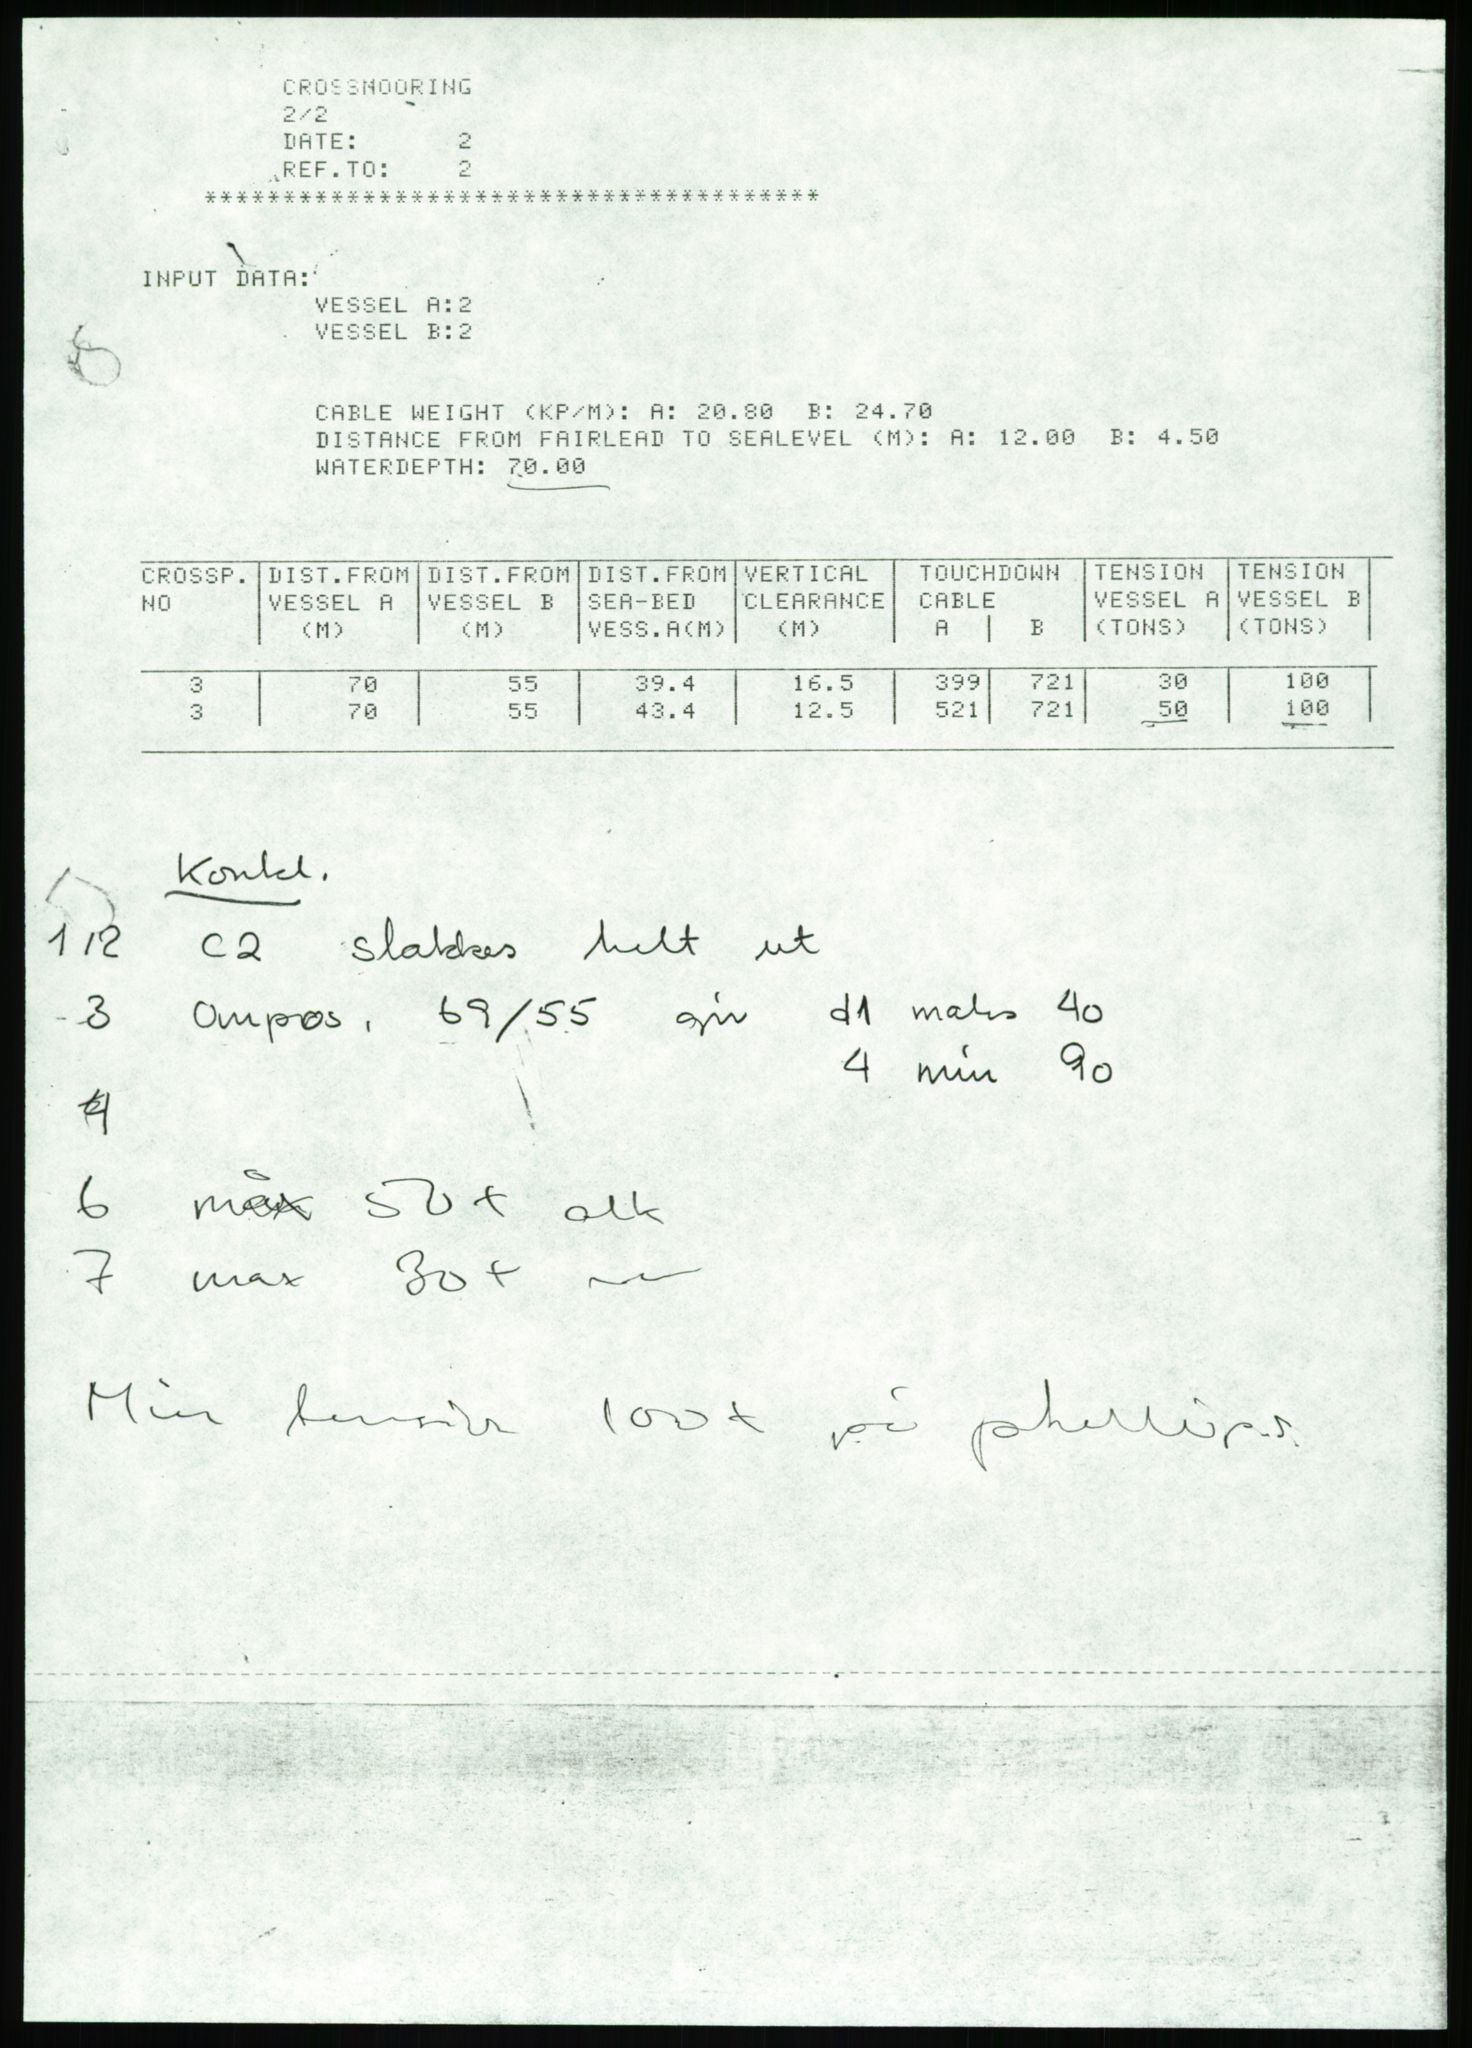 CROSSMOORING
2/2
DATE: 2
REF.TO: 2
***************************************
INPUT DATA:
VESSEL A:2
VESSEL B:2
CABLE WEIGHT (KP/M): A: 20.80 B: 24.70
DISTANCE FROM FAIRLEAD TO SEALEVEL (M): A: 12.00 B: 4.50
WATERDEPTH: 70.00
CROSSP. DIST.FROM DIST.FROM DIST.FROM VERTICAL TOUCHDOWN TENSION TENSION
NO VESSEL A VESSEL B SEA-BED CLEARANCE CABLE VESSEL A VESSEL B
(M) (M) VESS.A(M) (M) A | B (TONS) (TONS)
3 70 55 39.4 16.5 399 721 30 100
3 70 55 43.4 12.5 521 721 50 100
Konkl.
1/2 C2 slakkes helt ut
3 Ompos. 69/55 gir d1 maks 40
4 min 90
4
6 max 50t alk
7 max 30t
Min tension 100t på phillips.